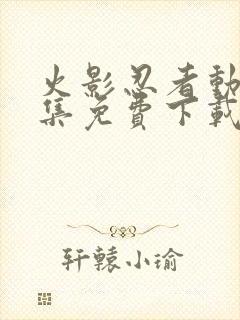 火影忍者動
集免費下載
轩辕小瑜